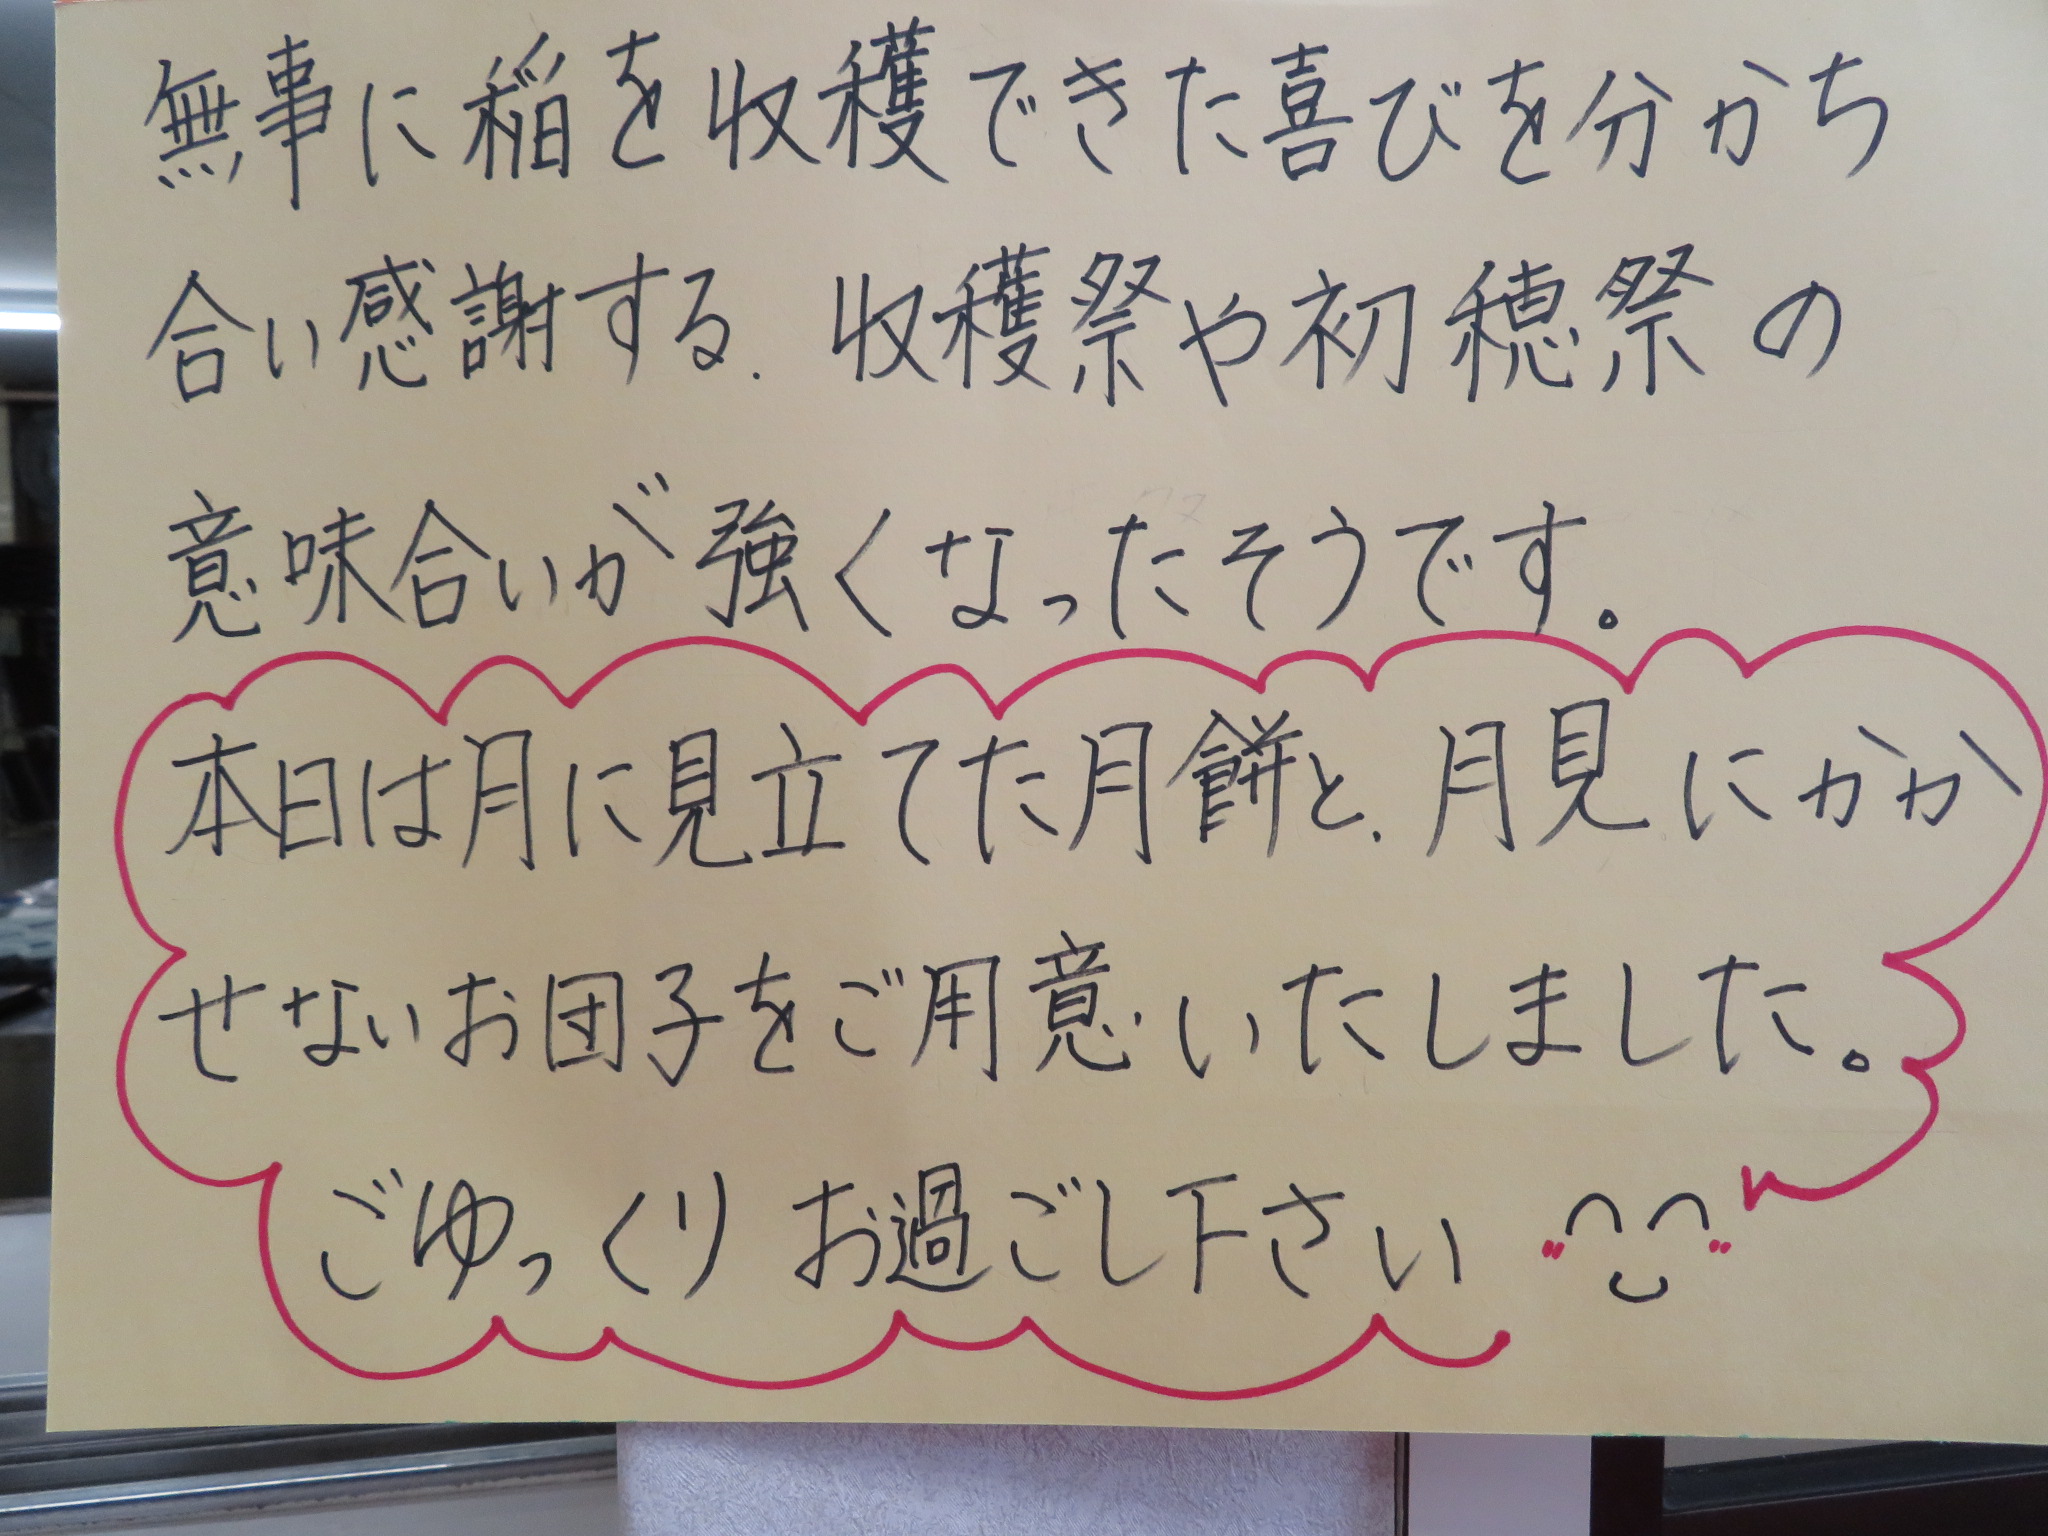 無事に稲を収穫できた喜びを分かち
合い感謝する、収穫祭や初穂祭の
意味合いが強くなったそうです。
本日は月に見立てた月餅と、月見にかか
せないお団子をご用意いたしました。
ごゆっくりお過ごし下さい